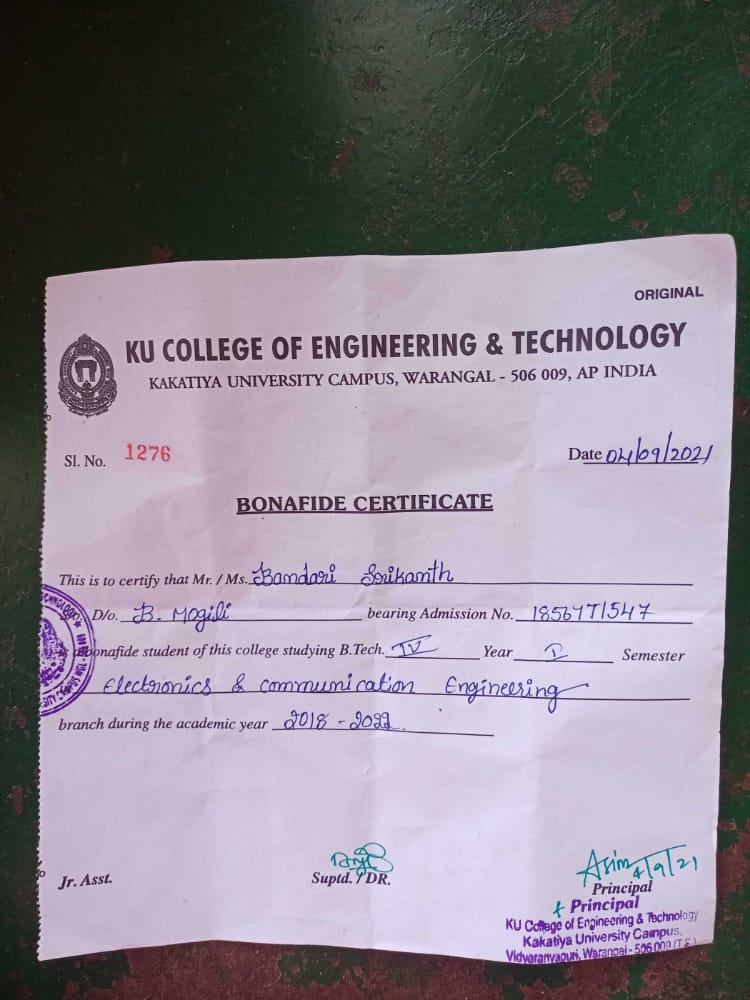 ORIGINAL
KU COLLEGE OF ENGINEERING & TECHNOLOGY
KAKATIYA UNIVERSITY CAMPUS, WARANGAL - 506 009, AP INDIA
Sl. No. 1276
Date 04/09/2021
BONAFIDE CERTIFICATE
This is to certify that Mr. / Ms. Bandari Srikanth
D/o. B. Mogili bearing Admission No. 18567T1547
bonafide student of this college studying B.Tech. IV Year I Semester
Electronics & communication Engineering
branch during the academic year 2018 - 2022.
Jr. Asst.
Suptd. / DR.
4/9/21
Principal
Principal
KU College of Engineering & Technology
Kakatiya University Campus,
Vidyaranyapuri, Warangal - 506 009 (T.S.)